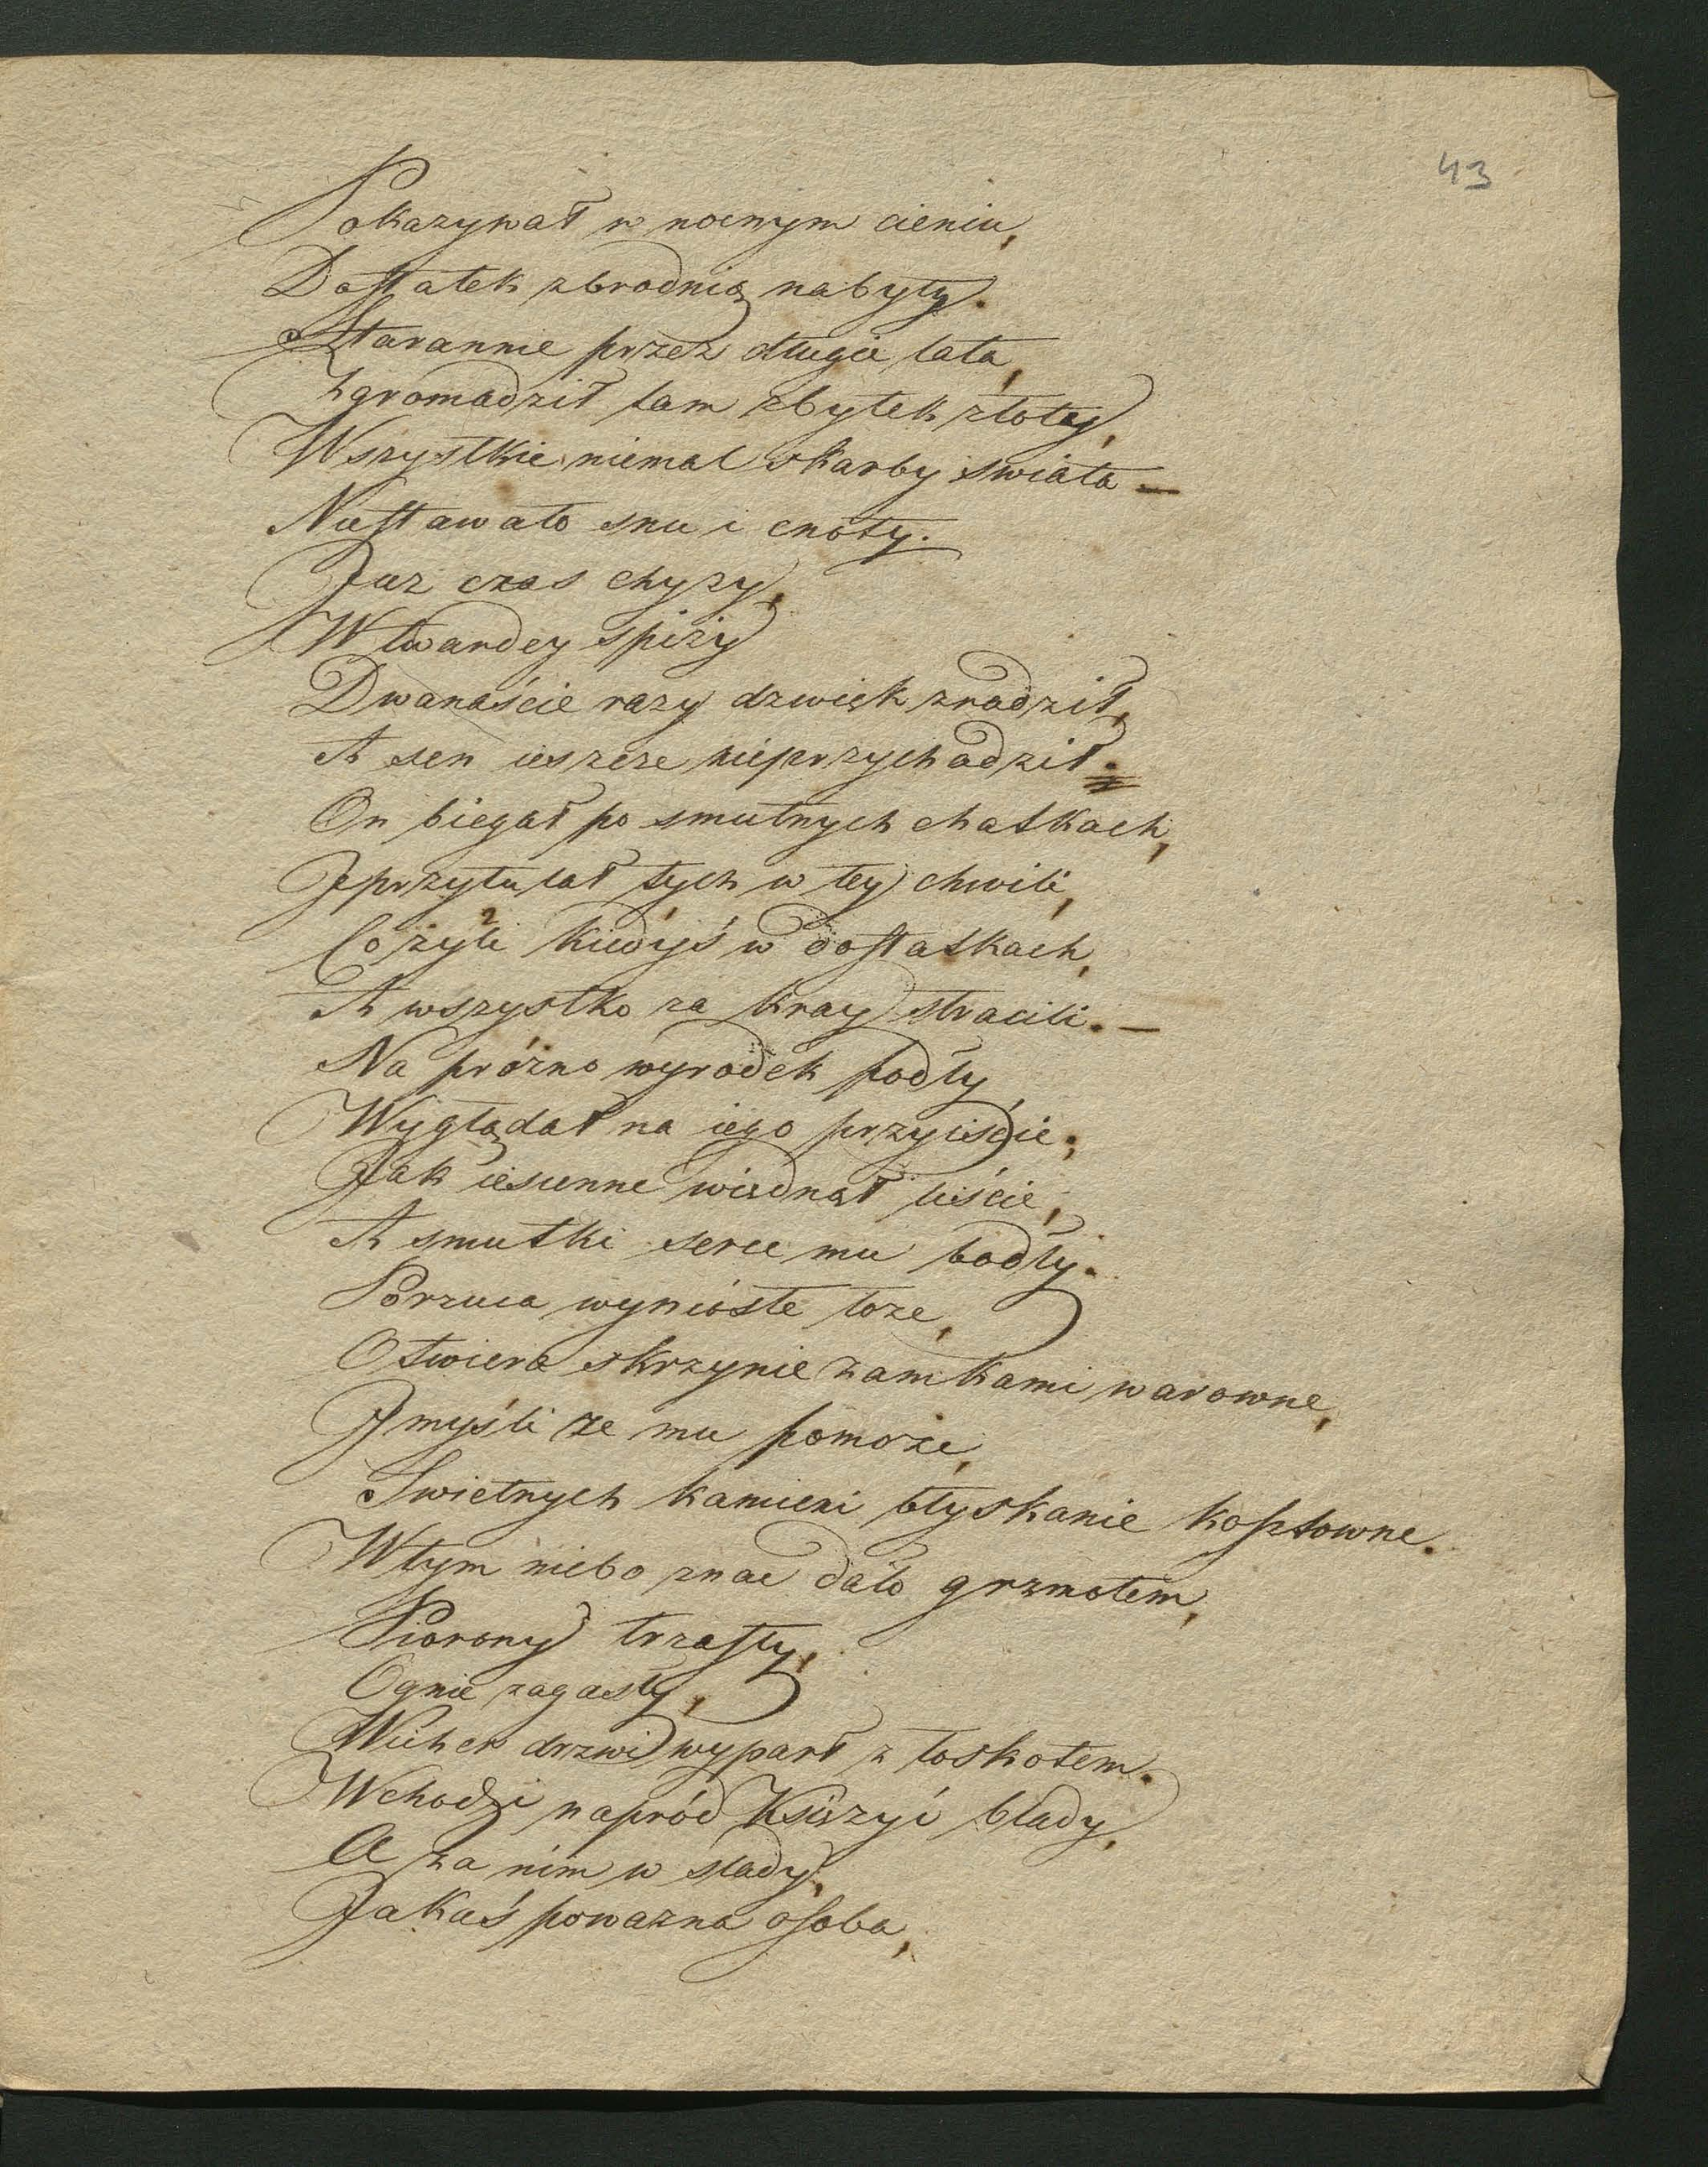 43
Pokazywał w nocnym cieniu,
Dostatek zbrodnią nabyty.
Starannie przez długie lata,
Zgromadził tam zbytek złoty,
Wszystkie niemal skarby swiata —
Niestawało snu i cnoty.
Juz czas chyzy,
W twardey spiży
Dwanaście razy dzwięk zrodził,
A sen ieszcze nieprzychodził.
On biegał po smutnych chatkach,
I przytulał tych w tey chwili,
Co żyli kiedyś w dostatkach,
A wszystko za kray stracili. —
Na prózno wyrodek podły
Wyglądał na iego przyiście;
Jak iesienne wiądnął liście,
A smutki serce mu bodły.
Porzuca wyniosłe łoze,
Otwiera skrzynie zamkami warowne,
I myśli ze mu pomoże,
Swietnych kamieni błyskanie kosztowne.
W tym niebo znac dało grzmotem,
Piorony trzasły,
Ognie zagasły,
Wicher drzwi wyparł z łoskotem.
Wchodzi napród Ksiązyć blady,
A za nim w slady,
Jakaś powazna osoba,